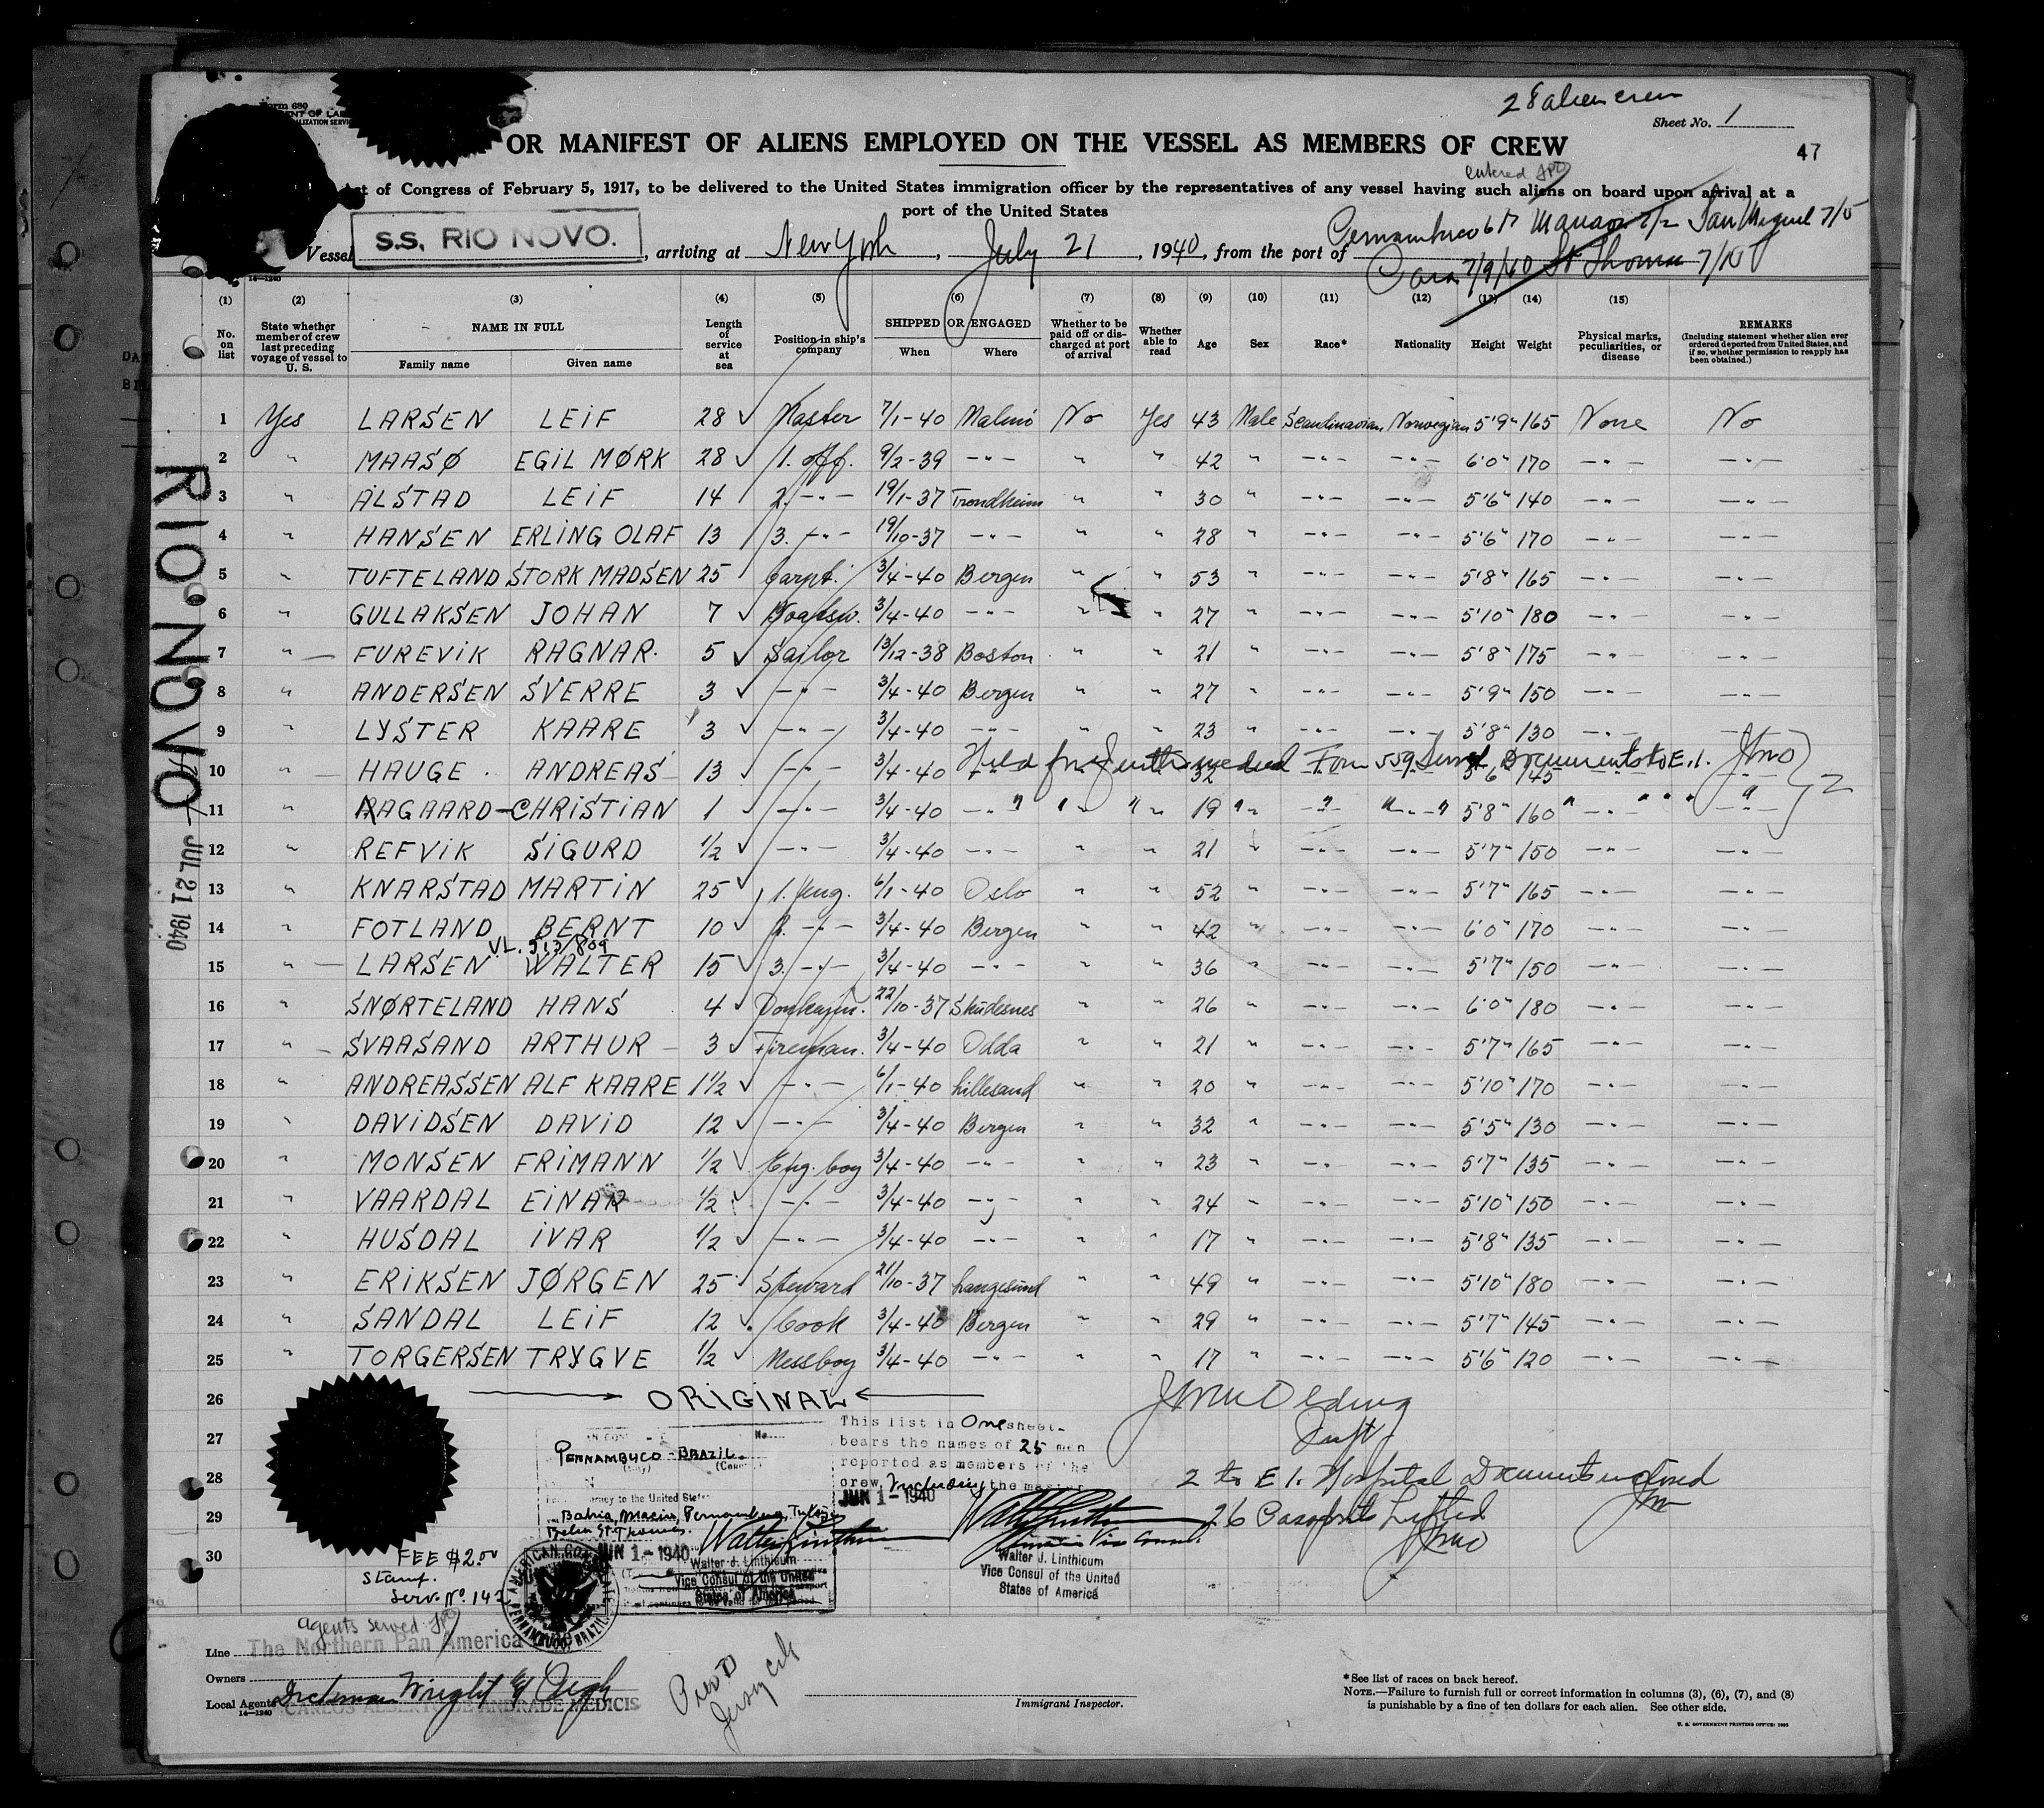 28 alien crew
Form 680
Sheet No. 1
OR MANIFEST OF ALIENS EMPLOYED ON THE VESSEL AS MEMBERS OF CREW
47
entered
Act of Congress of February 5, 1917, to be delivered to the United States immigration officer by the representatives of any vessel having such aliens on board upon arrival at a
port of the United States
Pernambuco 6/7 Manaos 7/2 San Miguel 7/5
Vessel S.S. RIO NOVO. , arriving at New York , July 21 , 1940, from the port of
Para 7/9/40 St Thomas 7/10
14—1240
(1) (2) (3) (4) (5) (6) (7) (8) (9) (10) (11) (12) (13) (14) (15)
No. on list
State whether member of crew last preceding voyage of vessel to U. S.
NAME IN FULL
Family name Given name
Length of service at sea
Position in ship's company
SHIPPED OR ENGAGED
When Where
Whether to be paid off or discharged at port of arrival
Whether able to read
Age Sex Race* Nationality Height Weight
Physical marks, peculiarities, or disease
REMARKS
(Including statement whether alien ever ordered deported from United States, and if so, whether permission to reapply has been obtained.)
1 Yes LARSEN LEIF 28 ✓ Master 7/1-40 Malmö No Yes 43 Male Scandinavian Norwegian 5'9" 165 None No
2 " MAASØ EGIL MØRK 28 ✓ 1. Off. 9/2-39 -"- " " 42 " -"- -"- 6'0" 170 -"- -"-
3 " ALSTAD LEIF 14 2. -"- 19/1-37 Trondheim " " 30 " -"- -"- 5'6" 140 -"- -"-
4 " HANSEN ERLING OLAF 13 3. -"- 19/10-37 -"- " " 28 " -"- -"- 5'6" 170 -"- -"-
5 " TUFTELAND STORK MADSEN 25 Carpt. 3/4-40 Bergen " " 53 " -"- -"- 5'8" 165 -"- -"-
6 " GULLAKSEN JOHAN 7 ✓ Boatsw. 3/4-40 -"- " " 27 " -"- -"- 5'10" 180 -"- -"-
7 " FUREVIK RAGNAR. 5 ✓ Sailor 13/12-38 Boston " " 21 " -"- -"- 5'8" 175 -"- -"-
8 " ANDERSEN SVERRE 3 ✓ -"- 3/4-40 Bergen " " 27 " -"- -"- 5'9" 150 -"- -"-
9 " LYSTER KAARE 3 ✓ -"- 3/4-40 -"- " " 23 " -"- -"- 5'8" 130 -"- -"-
Held for further medical Form 559 Served Documents to E.I.
10 " HAUGE ANDREAS 13 ✓ -"- 3/4-40 -"- " " 32 " -"- -"- 5'6" 145 -"- -"- 2
11 " AAGAARD-CHRISTIAN 1 ✓ -"- 3/4-40 -"- " " 19 " -"- -"- 5'8" 160 -"- -"-
12 " REFVIK SIGURD 1/2 ✓ -"- 3/4-40 -"- " " 21 " -"- -"- 5'7" 150 -"- -"-
13 " KNARSTAD MARTIN 25 ✓ 1. Eng. 6/1-40 Oslo " " 52 " -"- -"- 5'7" 165 -"- -"-
14 " FOTLAND BERNT 10 ✓ 2. -"- 3/4-40 Bergen " " 42 " -"- -"- 6'0" 170 -"- -"-
V.L. 513/809
15 " LARSEN WALTER 15 ✓ 3. -"- 3/4-40 -"- " " 36 " -"- -"- 5'7" 150 -"- -"-
16 " SNØRTELAND HANS 4 ✓ Donkeym. 22/10-37 Skudesnes " " 26 " -"- -"- 6'0" 180 -"- -"-
17 " SVAASAND ARTHUR 3 ✓ Fireman. 3/4-40 Odda " " 21 " -"- -"- 5'7" 165 -"- -"-
18 " ANDREASSEN ALF KAARE 1 1/2 ✓ -"- 6/1-40 Lillesand " " 20 " -"- -"- 5'10" 170 -"- -"-
19 " DAVIDSEN DAVID 12 ✓ -"- 3/4-40 Bergen " " 32 " -"- -"- 5'5" 130 -"- -"-
20 " MONSEN FRIMANN 1/2 ✓ Eng. boy 3/4-40 -"- " " 23 " -"- -"- 5'7" 135 -"- -"-
21 " VAARDAL EINAR 1/2 -"- 3/4-40 -"- " " 24 " -"- -"- 5'10" 150 -"- -"-
22 " HUSDAL IVAR 1/2 ✓ -"- 3/4-40 -"- " " 17 " -"- -"- 5'8" 135 -"- -"-
23 " ERIKSEN JØRGEN 25 Steward 21/10-37 Langesund " " 49 " -"- -"- 5'10" 180 -"- -"-
24 " SANDAL LEIF 12 ✓ Cook 3/4-40 Bergen " " 29 " -"- -"- 5'7" 145 -"- -"-
25 " TORGERSEN TRYGVE 1/2 ✓ Messboy 3/4-40 -"- " " 17 " -"- -"- 5'6" 120 -"- -"-
26 ORIGINAL
27
28
29
30
RIO NOVO
JUL 21 1940
PERNAMBUCO-BRAZIL.
(City) (Country)
journey to the United States
Bahia, Maceio, Pernambuco,
Belem St. Thomas.
JUN 1-1940
Walter J. Linthicum
Vice Consul of the United
States of America
This list in One sheet
bears the names of 25 men
reported as members of the
crew, including the master
JUN 1-1940
Walter J. Linthicum
Vice Consul of the United
States of America
2 to E I. Hospital Documents inclosed
26 Passports Lifted
FEE $2.00
Stamp.
Serv. No. 142
AMERICAN CONSULATE PERNAMBUCO, BRAZIL
agents served
Line The Northern Pan America Line
Owners
Local Agents Dichman Wright & Pugh
CARLOS ALBERTO DE ANDRADE MEDICIS
14—1240
Pier D
Jersey City
Immigrant Inspector.
*See list of races on back hereof.
NOTE.—Failure to furnish full or correct information in columns (3), (6), (7), and (8)
is punishable by a fine of ten dollars for each alien. See other side.
U. S. GOVERNMENT PRINTING OFFICE